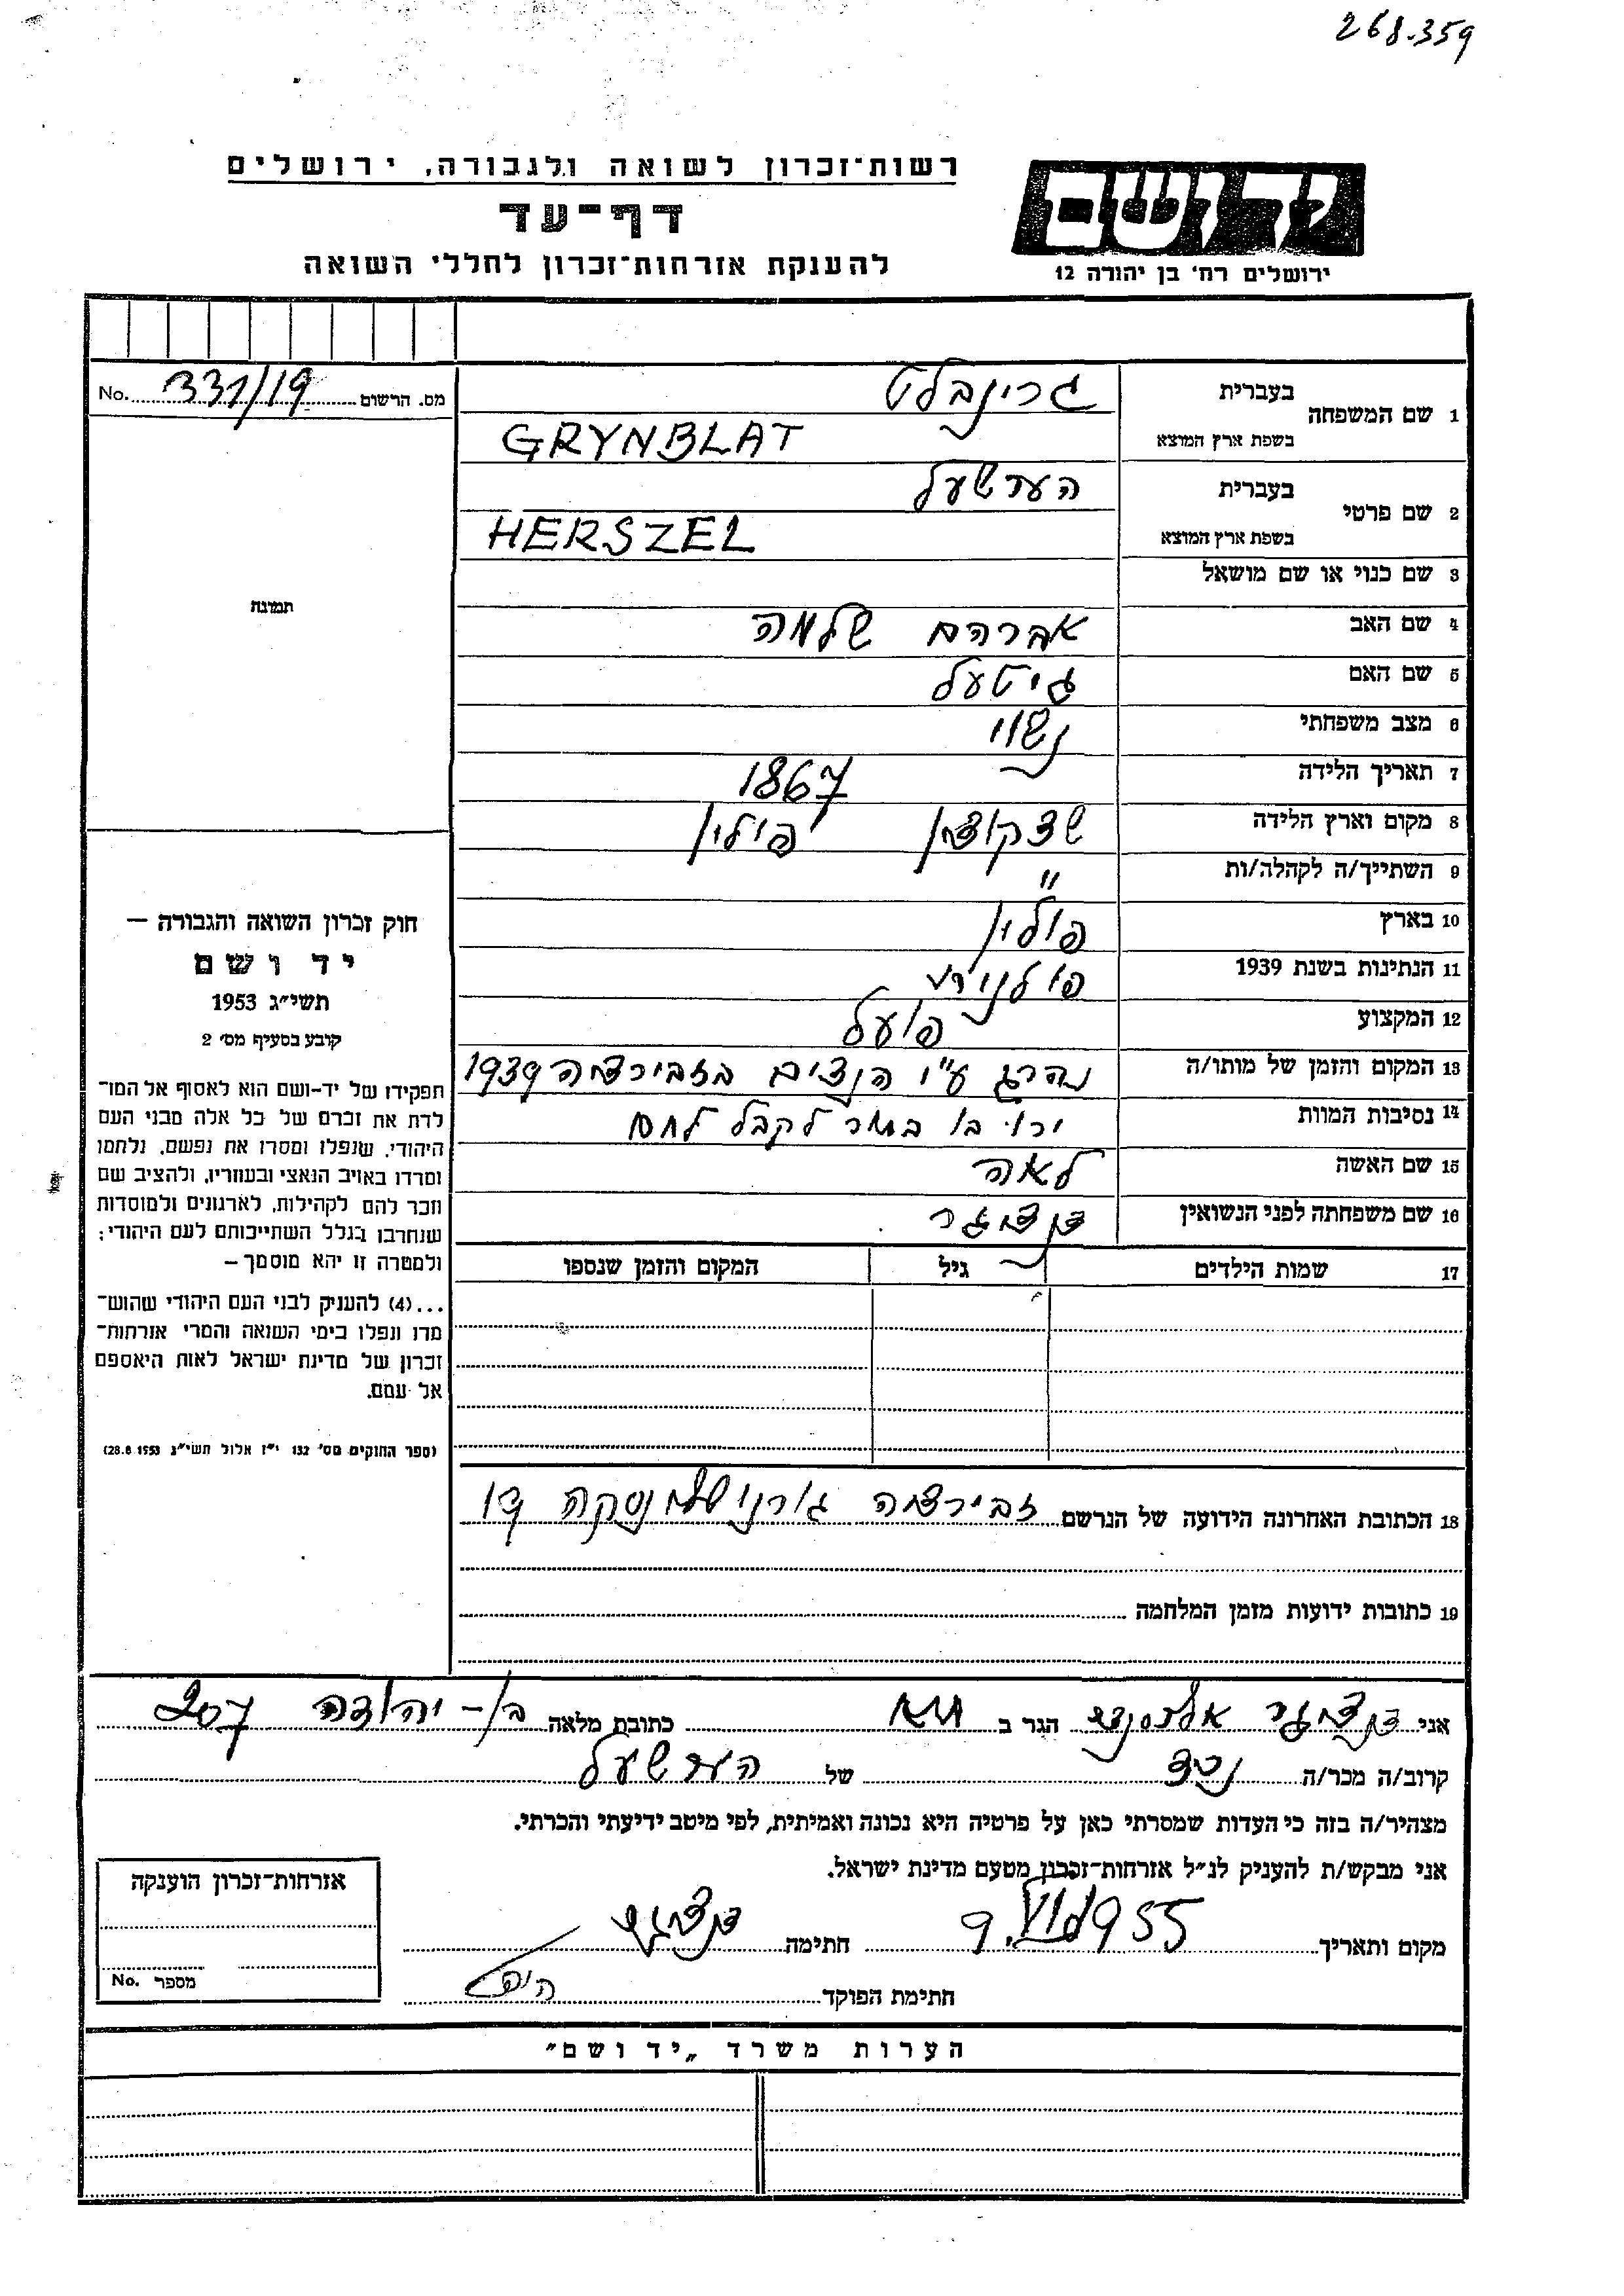 268.359
רשות־זכרון לשואה ולגבורה, ירושלים
דף־עד
להענקת אזרחות־זכרון לחללי השואה
יד ושם
ירושלים רח׳ בן יהודה 12
מס. הרשום 331/19 No.
1 שם המשפחה בעברית גרינבלט
בשפת ארץ המוצא GRYNBLAT
2 שם פרטי בעברית הערשעל
בשפת ארץ המוצא HERSZEL
3 שם כנוי או שם מושאל
תמונה
4 שם האב אברהם שלמה
5 שם האם גיטעל
6 מצב משפחתי נשוי
7 תאריך הלידה 1867
8 מקום וארץ הלידה פולין
9 השתייך/ה לקהלה/ות "
10 בארץ פולין
11 הנתינות בשנת 1939 פולנית
12 המקצוע פועל
13 המקום והזמן של מותו/ה נהרג ע"י הנצים בזבירציה 1939
14 נסיבות המוות ירו בו בתור לקבל לחם
15 שם האשה לאה
16 שם משפחתה לפני הנשואין דנציגר
17 שמות הילדים גיל המקום והזמן שנספו
חוק זכרון השואה והגבורה —
יד ושם
תשי״ג 1953
קובע בסעיף מס׳ 2
תפקידו של יד-ושם הוא לאסוף אל המו־
לדת את זכרם של כל אלה מבני העם
היהודי, שנפלו ומסרו את נפשם, נלחמו
ומרדו באויב הנאצי ובעוזריו, ולהציב שם
וזכר להם לקהילות, לארגונים ולמוסדות
שנחרבו בגלל השתייכותם לעם היהודי;
ולמטרה זו יהא מוסמך —
...(4) להעניק לבני העם היהודי שהוש־
מדו ונפלו בימי השואה והמרי אזרחות־
זכרון של מדינת ישראל לאות היאספם
אל עמם.
(ספר החוקים מס׳ 132 י״ז אלול תשי״ג 28.8.1953)
18 הכתובת האחרונה הידועה של הנרשם זבירציה
19 כתובות ידועות מזמן המלחמה
אני דנציגר אלכסנדר הגר ב תא כתובת מלאה בן-יהודה 207
קרוב/ה מכר/ה נכד של הערשעל
מצהיר/ה בזה כי העדות שמסרתי כאן על פרטיה היא נכונה ואמיתית, לפי מיטב ידיעתי והכרתי.
אני מבקש/ת להעניק לנ״ל אזרחות־זכרון מטעם מדינת ישראל.
מקום ותאריך 1955 חתימה דנציגר
חתימת הפוקד
אזרחות־זכרון הוענקה
מספר No.
הערות משרד „יד ושם״